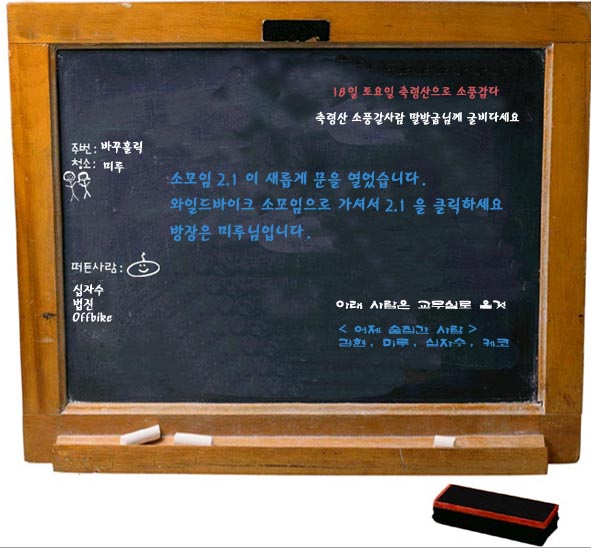 18일 토요일 축령산으로 소풍감다
축령산 소풍갈사람 말발굽님께 굴비다세요
주번: 바꾸홀릭
청소: 미루
소모임 2.1 이 새롭게 문을 열었습니다.
와일드바이크 소모임으로 가셔서 2.1 을 클릭하세요
방장은 미루님입니다.
떠든사람:
십자수
법진
Offbike
아래 사람은 교무실로 올것
< 어제 술집간 사람 >
김현, 미루, 십자수, 케코